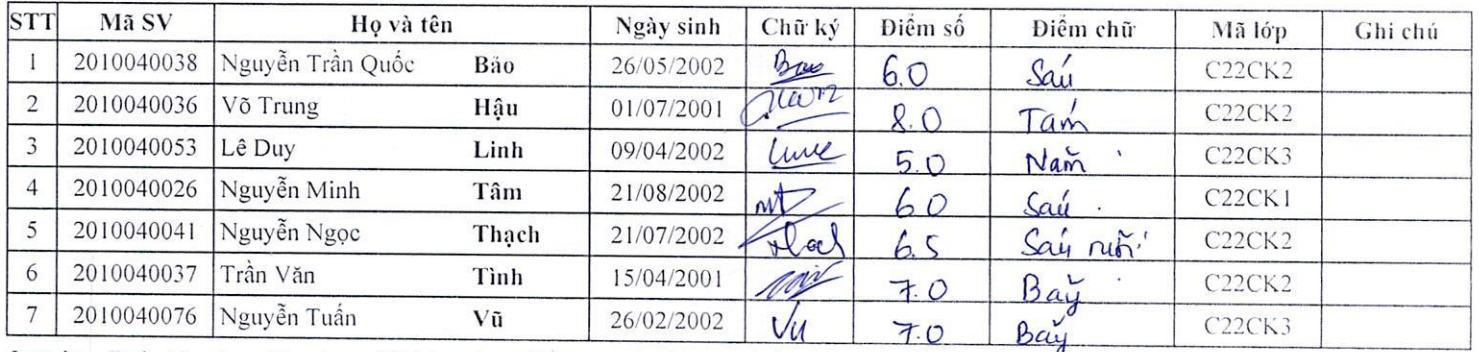 STT Mã SV Họ và tên Ngày sinh Chữ ký Điểm số Điểm chữ Mã lớp Ghi chú
1 2010040038 Nguyễn Trần Quốc Bảo 26/05/2002 Bao 6.0 Sáu C22CK2
2 2010040036 Võ Trung Hậu 01/07/2001 8.0 Tám C22CK2
3 2010040053 Lê Duy Linh 09/04/2002 5.0 Năm C22CK3
4 2010040026 Nguyễn Minh Tâm 21/08/2002 6.0 Sáu C22CK1
5 2010040041 Nguyễn Ngọc Thạch 21/07/2002 6.5 Sáu rưỡi C22CK2
6 2010040037 Trần Văn Tình 15/04/2001 7.0 Bảy C22CK2
7 2010040076 Nguyễn Tuấn Vũ 26/02/2002 Vu 7.0 Bảy C22CK3